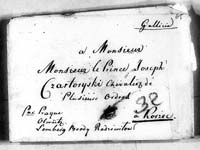 Gallicie
à Monsieur
Monsieur le Prince Joseph
Czartoryski Chevalier de
Plusieurs Ordres
Par Prague
Olmütz
à Korzec
Lemberg Brody Radziwilow